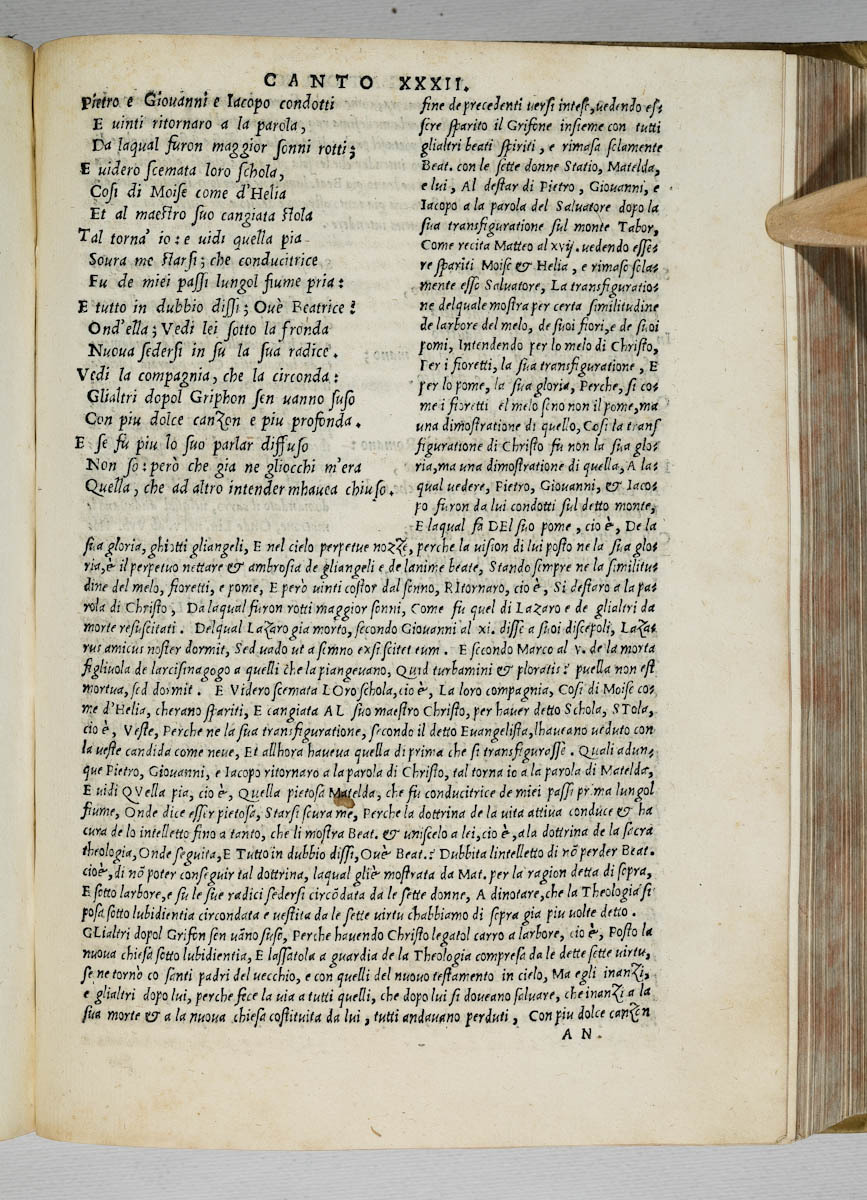 CANTO XXXII.
Pietro e Giouanni e Iacopo condotti
E uinti ritornaro a la parola,
Da laqual furon maggior sonni rotti;
E uidero scemata loro schola,
Cosi di Moise come d'Helia
Et al maestro suo cangiata stola
Tal torna' io: e uidi quella pia
Soura me starsi; che conducitrice
Fu de miei passi lungol fiume pria:
E tutto in dubbio dissi; Ouè Beatrice?
Ond'ella; Vedi lei sotto la fronda
Nuoua sedersi in su la sua radice.
Vedi la compagnia, che la circonda:
Glialtri dopol Griphon sen uanno suso
Con piu dolce canzon e piu profonda.
E se fu piu lo suo parlar diffuso
Non so: però che gia ne gliocchi m'era
Quella, che ad altro intender mhauea chiuso.
fine de precedenti uersi intese, uedendo es=
sere sparito il Grifone insieme con tutti
glialtri beati spiriti, e rimasa solamente
Beat. con le sette donne Statio, Matelda,
e lui, Al destar di Pietro, Giouanni, e
Iacopo a la parola del Saluatore dopo la
sua transfiguratione sul monte Tabor,
Come recita Matteo al xvij. uedendo esse=
re spariti Moise & Helia, e rimaso sola=
mente esso Saluatore, La transfiguratio=
ne delquale mostra per certa similitudine
de larbore del melo, de suoi fiori, e de suoi
pomi, Intendendo per lo melo di Christo,
Per i fioretti, la sua transfiguratione, E
per lo pome, la sua gloria, Perche, si co=
me i fioretti el melo sono non il pome, ma
una dimostratione di quello, Cosi la trans
figuratione di Christo fu non la sua glo=
ria, ma una dimostratione di quella, A la=
qual uedere, Pietro, Giouanni, & Iaco=
po furon da lui condotti sul detto monte,
E laqual fa DEl suo pome, cio è, De la
sua gloria, ghiotti gliangeli, E nel cielo perpetue nozze, perche la uision di lui posto ne la sua glo=
ria, è il perpetuo nettare & ambrosia de gliangeli e de lanime beate, Stando sempre ne la similitu=
dine del melo, fioretti, e pome, E però uinti costor dal sonno, RItornaro, cio è, Si destaro a la pa=
rola di Christo, Da laqual furon rotti maggior sonni, Come fu quel di Lazaro e de glialtri da
morte resuscitati. Delqual Lazaro gia morto, secondo Giouanni al xi. disse a suoi discepoli, Laza=
rus amicus noster dormit, Sed uado ut a somno exsiscitet eum. E secondo Marco al v. de la morta
figliuola de larcisinagogo a quelli che la piangeuano, Quid turbamini & ploratis? puella non est
mortua, sed dormit. E Videro scemata LOro schola, cio è, La loro compagnia, Cosi di Moise co=
me d'Helia, cherano spariti, E cangiata AL suo maestro Christo, per hauer detto Schola, STola,
cio è, Veste, Perche ne la sua transfiguratione, secondo il detto Euangelista, lhaueano ueduto con
la ueste candida come neue, Et allhora haueua quella di prima che si transfigurasse. Quali adun=
que Pietro, Giouanni, e Iacopo ritornaro a la parola di Christo, tal torna io a la parola di Matelda,
E uidi QVella pia, cio è, Quella pietosa Matelda, che fu conducitrice de miei passi prima lungol
fiume, Onde dice esser pietosa, Starsi soura me, Perche la dottrina de la uita attiua conduce & ha
cura de lo intelletto fino a tanto, che li mostra Beat. & uniscelo a lei, cio è, a la dottrina de la sacra
theologia, Onde seguita, E Tutto in dubbio dissi, Ouè Beat.? Dubbita lintelletto di nõ perder Beat.
cioè, di nõ poter conseguir tal dottrina, laqual gliè mostrata da Mat. per la ragion detta di sopra,
E sotto larbore, e su le sue radici sedersi circõdata da le sette donne, A dinotare, che la Theologia si
posa sotto lubidientia circondata e uestita da le sette uirtu chabbiamo di sopra gia piu uolte detto.
GLialtri dopol Grifon sen uãno suso, Perche hauendo Christo legatol carro a larbore, cio è, Posto la
nuoua chiesa sotto lubidientia, E lassatola a guardia de la Theologia compresa da le dette sette uirtu,
se ne tornò co santi padri del uecchio, e con quelli del nuouo testamento in cielo, Ma egli inanzi,
e glialtri dopo lui, perche fece la uia a tutti quelli, che dopo lui si doueano saluare, che inanzi a la
sua morte & a la nuoua chiesa costituita da lui, tutti andauano perduti, Con piu dolce canzon
AN.